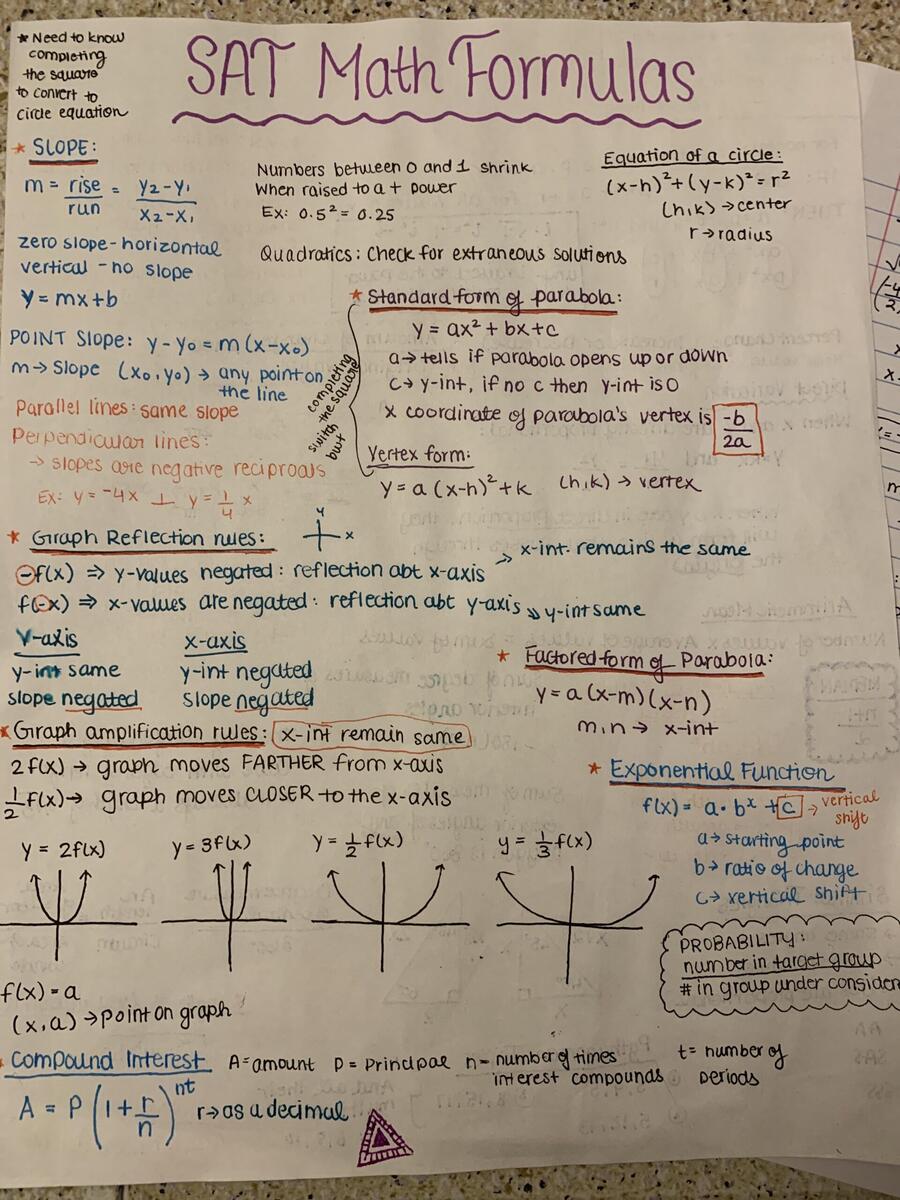 * Need to know
completing
the square
to convert to
circle equation
SAT Math Formulas
* SLOPE:
m = rise/run = y₂-y₁/x₂-x₁
zero slope - horizontal
vertical - no slope
y = mx+b
POINT SLOPE: y-y₀ = m(x-x₀)
m→ slope (x₀,y₀) → any point on
the line
Parallel lines: same slope
Perpendicular lines:
→ slopes are negative reciproals
Ex: y = -4x ⊥ y = 1/4 x
Numbers between 0 and 1 shrink
When raised to a + power
Ex: 0.5² = 0.25
Quadratics: Check for extraneous solutions
Equation of a circle:
(x-h)²+(y-k)²=r²
(h,k) → center
r→radius
* Standard form of parabola:
y = ax² + bx+c
a→ tells if parabola opens up or down
c→ y-int, if no c then y-int is 0
x coordinate of parabola's vertex is -b/2a
completing
the square
switch
but
Vertex form:
y = a (x-h)²+k (h,k) → vertex
* Graph Reflection rules:
y
x
-f(x) ⇒ y-values negated: reflection abt x-axis → x-int. remains the same
f(-x) ⇒ x-values are negated: reflection abt y-axis ⇒ y-int same
y-axis
y-int same
slope negated
x-axis
y-int negated
slope negated
* Factored form of Parabola:
y = a (x-m)(x-n)
m,n → x-int
* Graph amplification rules: x-int remain same
2f(x) → graph moves FARTHER from x-axis
1/2 f(x)→ graph moves CLOSER to the x-axis
* Exponential Function
f(x) = a·bˣ + c → vertical
shift
a→ starting point
b→ ratio of change
c→ vertical shift
y = 2f(x)
y = 3f(x)
y = 1/2 f(x)
y = 1/3 f(x)
PROBABILITY:
number in target group
# in group under consider
f(x) = a
(x,a) →point on graph
* Compound Interest A=amount P = Principal n= number of times
interest compounds
t= number of
periods
A = P(1+r/n)ⁿᵗ r→as a decimal